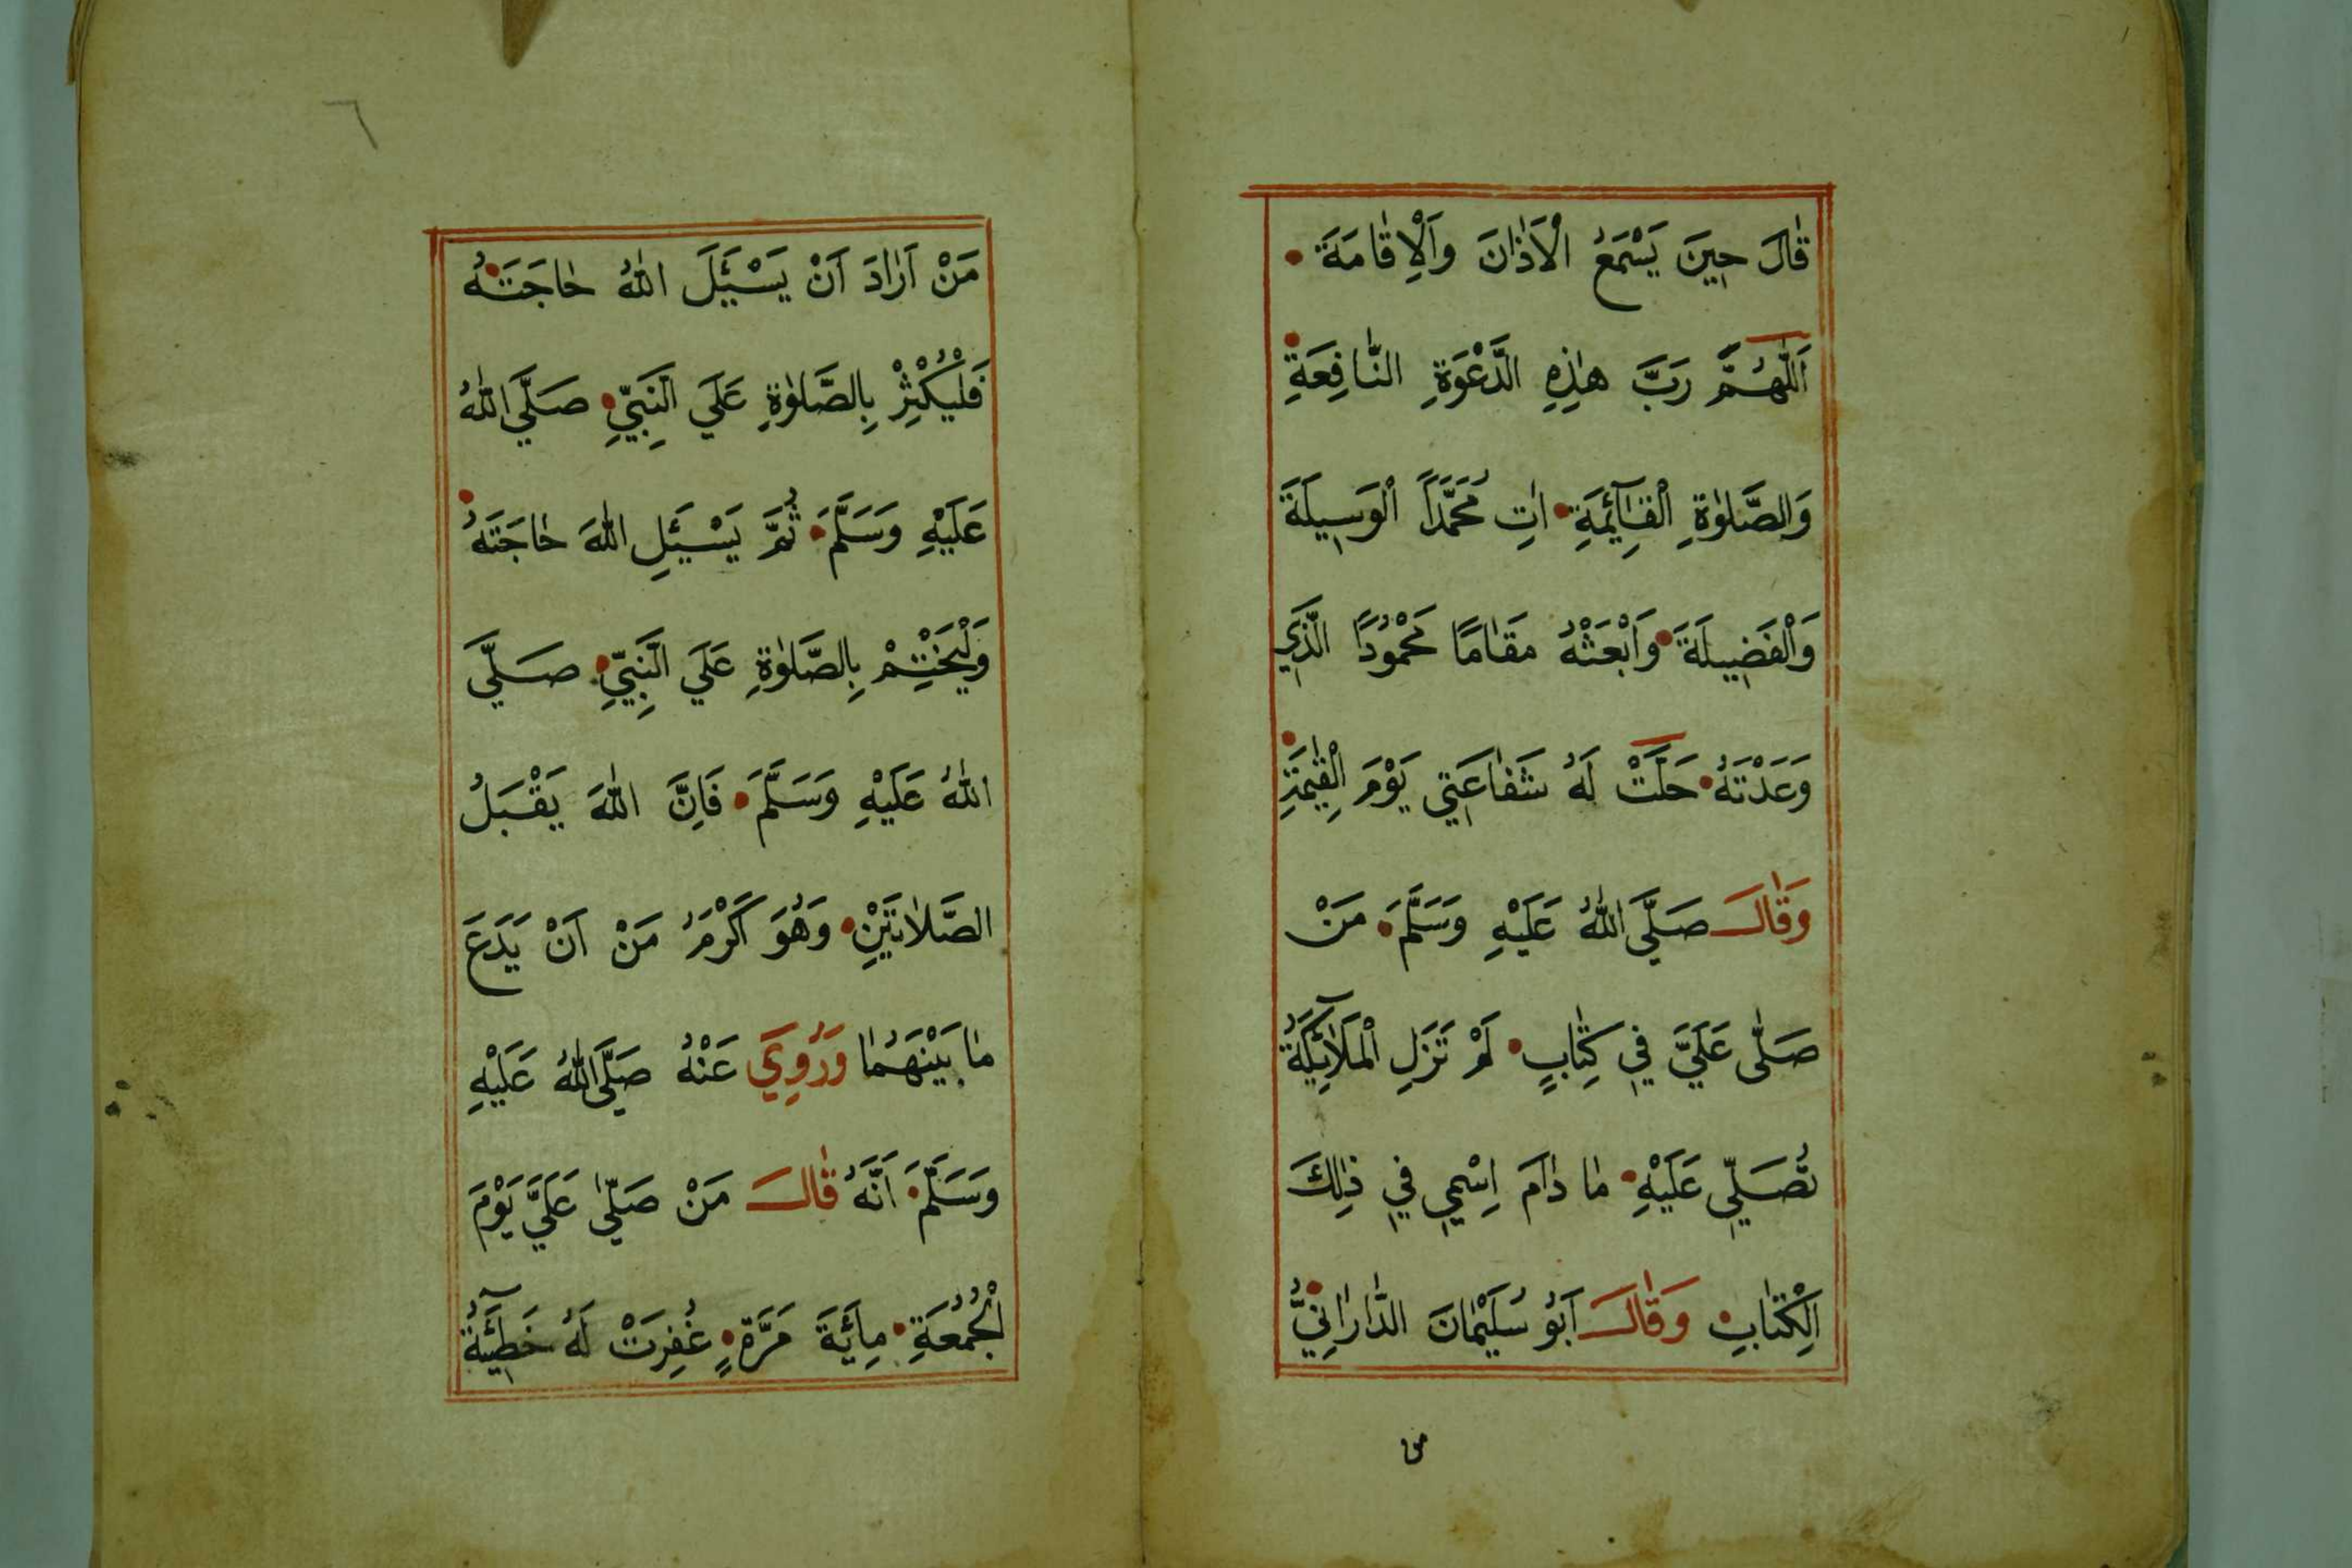 قَالَ حِينَ يَسْمَعُ الْاَذَانَ وَالْاِقَامَةَ
اَللّٰهُمَّ رَبَّ هٰذِهِ الدَّعْوَةِ النَّافِعَةِ
وَالصَّلٰوةِ الْقَآئِمَةِ اٰتِ مُحَمَّدًا الْوَسِيلَةَ
وَالْفَضِيلَةَ وَابْعَثْهُ مَقَامًا مَحْمُودًا الَّذِي
وَعَدْتَهُ حَلَّتْ لَهُ شَفَاعَتِي يَوْمَ الْقِيٰمَةِ
وَقَالَ صَلَّي اللّٰهُ عَلَيْهِ وَسَلَّمَ مَنْ
صَلّٰى عَلَيَّ فِي كِتَابٍ لَمْ تَزَلِ الْمَلَآئِكَةُ
تُصَلِّي عَلَيْهِ مَا دَامَ اِسْمِي فِي ذٰلِكَ
اَلْكِتَابِ وَقَالَ اَبُو سُلَيْمَانَ الدَّارَانِيُّ
من
٦
مَنْ اَرَادَ اَنْ يَسْئَلَ اللّٰهُ حَاجَتَهُ
فَلْيُكْثِرْ بِالصَّلٰوةِ عَلَي النَّبِيِّ صَلَّي اللّٰهُ
عَلَيْهِ وَسَلَّمَ ثُمَّ يَسْئَلِ اللّٰهَ حَاجَتَهُ
وَلْيَخْتِمْ بِالصَّلٰوةِ عَلَي النَّبِيِّ صَلَّي
اللّٰهُ عَلَيْهِ وَسَلَّمَ فَاِنَّ اللّٰهَ يَقْبَلُ
الصَّلَاتَيْنِ وَهُوَ اَكْرَمُ مَنْ اَنْ يَدَعَ
مَا بَيْنَهُمَا وَرُوِيَ عَنْهُ صَلَّي اللّٰهُ عَلَيْهِ
وَسَلَّمَ اَنَّهُ قَالَ مَنْ صَلّٰي عَلَيَّ يَوْمَ
الْجُمُعَةِ مِائَةَ مَرَّةٍ غُفِرَتْ لَهُ خَطِيْٓئَةُ